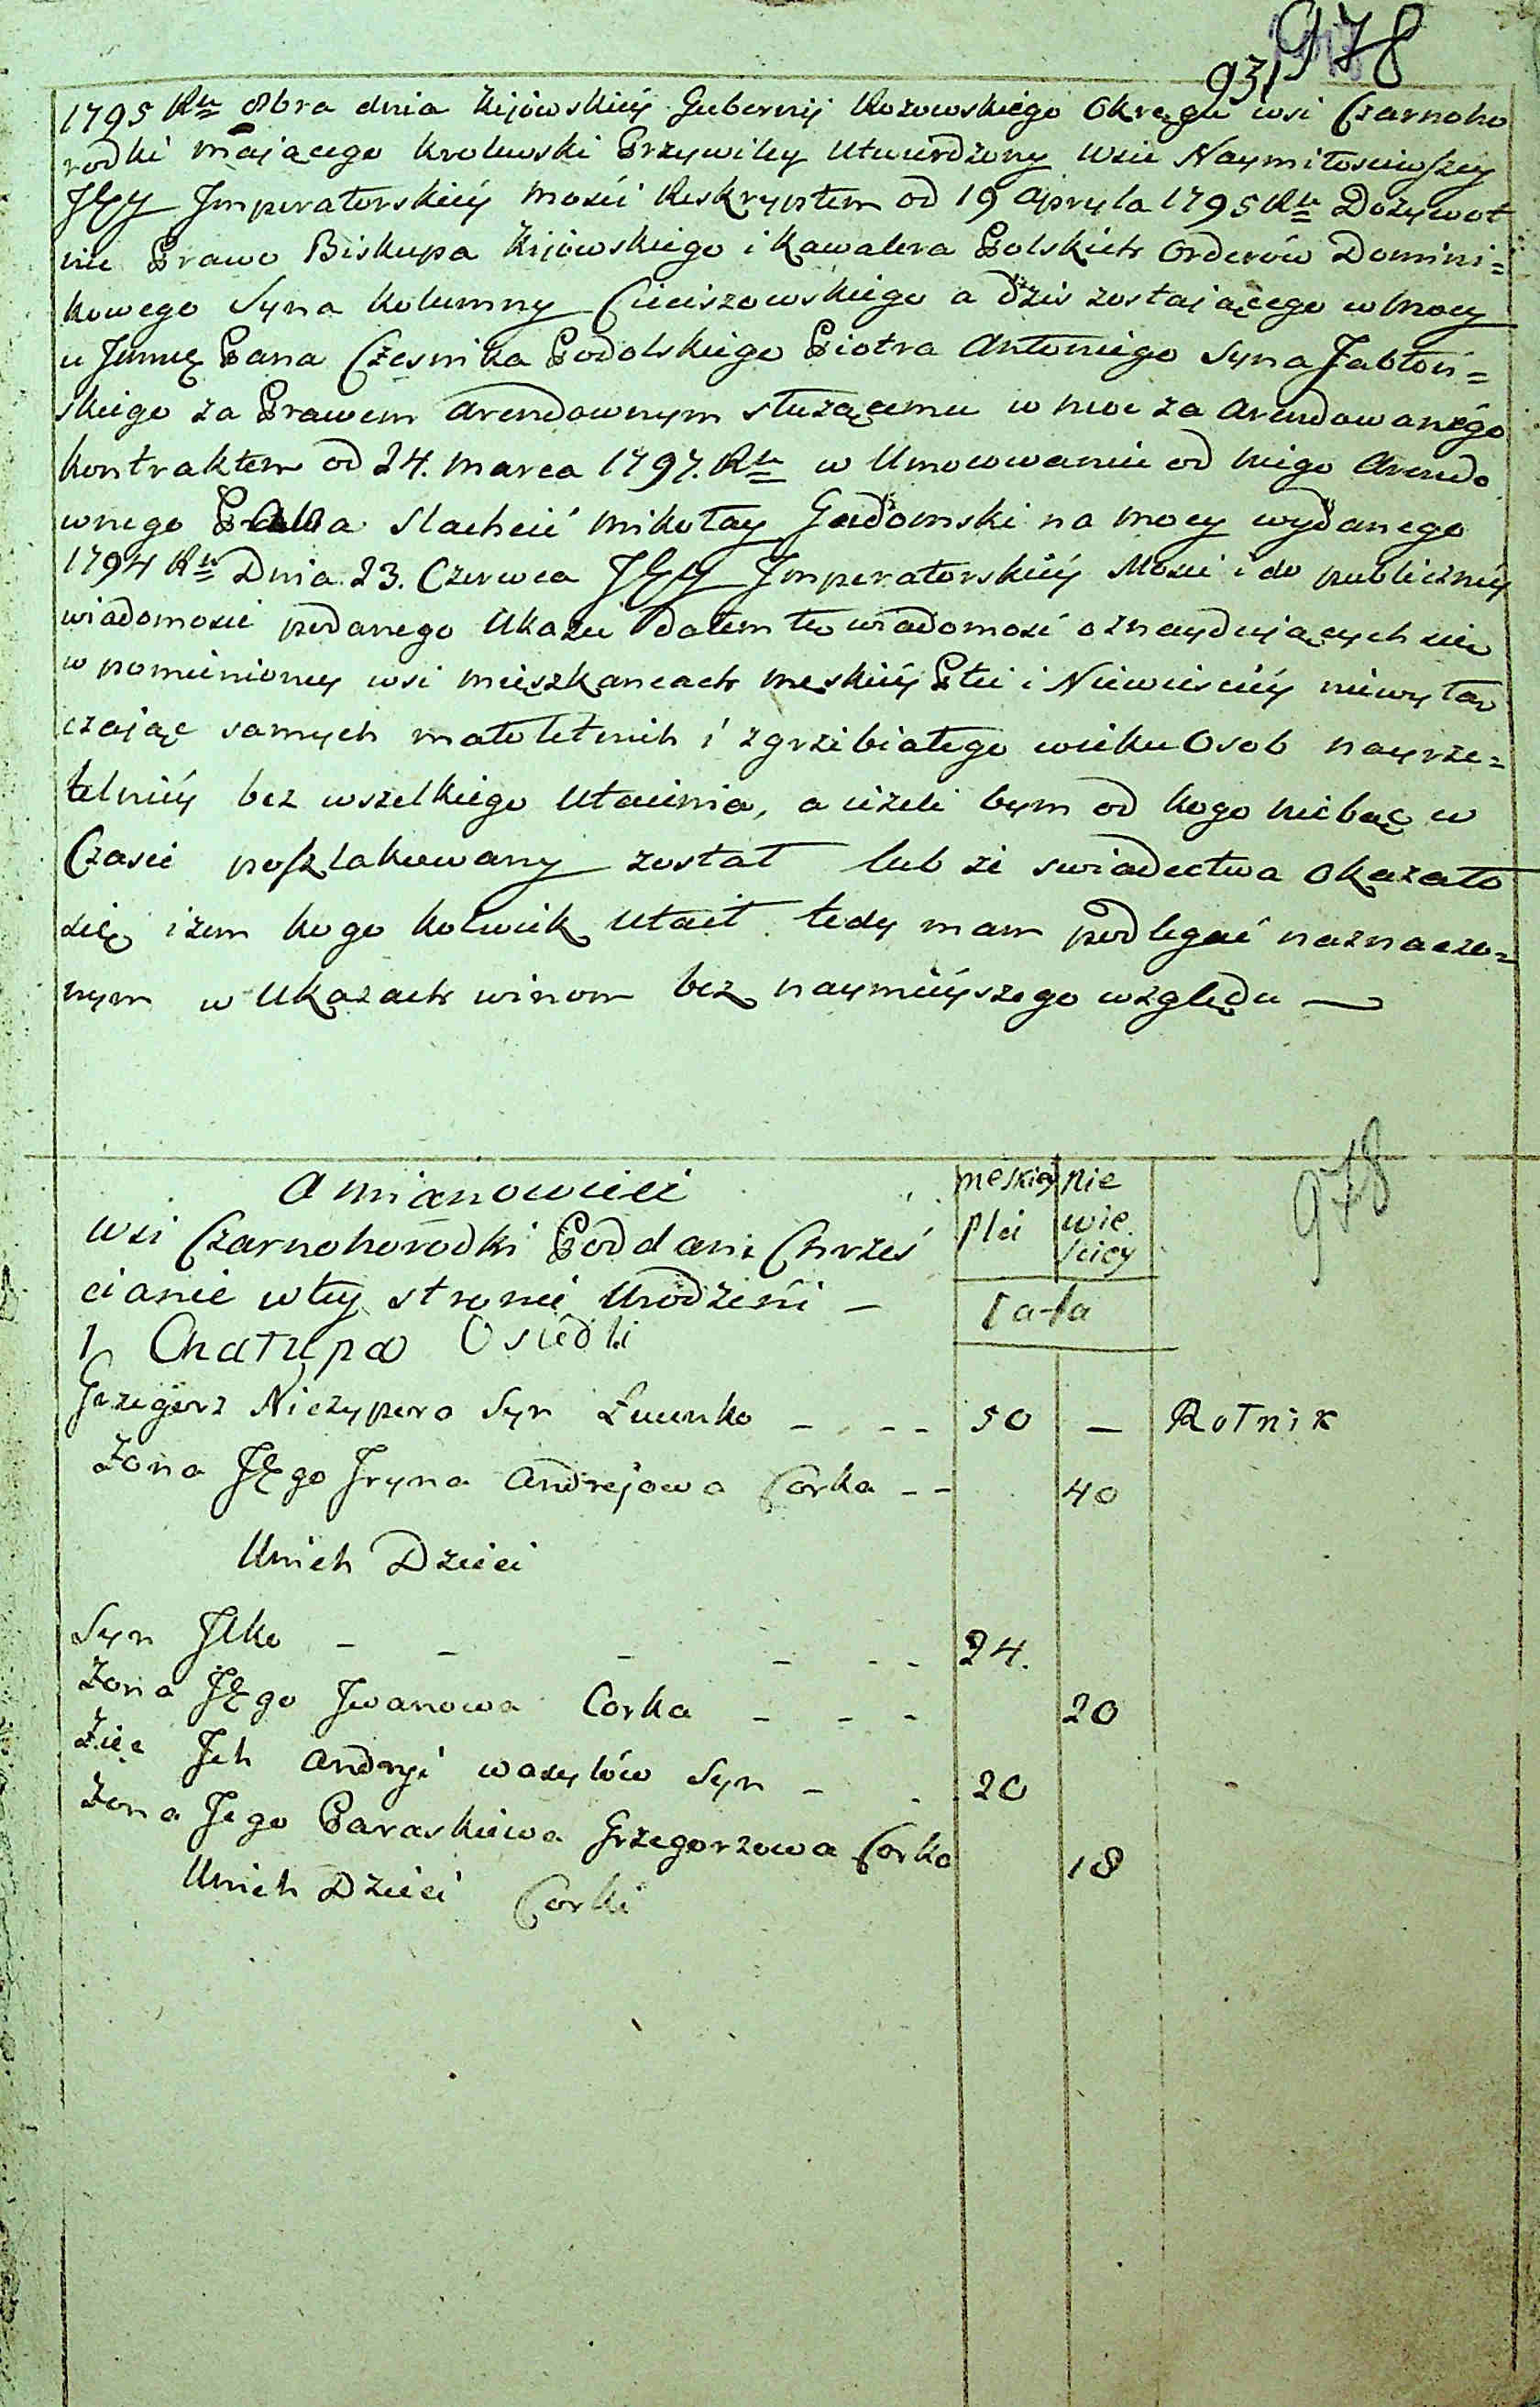 978
931
1795 Ru 8bra dnia Kijowskiey Gubernij Rozowskiego Okręgu wsi Czarnoho
rodki maiącego Krolewski Przywiley Utwierdzony Wsie Naymiłosciwszey
JEy Imperatorskiey Mosci Reskryptem od 19 Apryla 1795 Ru Dozywot
nie Prawo Biskupa Kijowskiego i Kawalera Polskich Orderów Domini=
kowego Syna Kolumny Cieciszowskiego a dzis zostaiącego w Mocy
u Jmmę Pana Czesnika Podolskiego Piotra Antoniego Syna Jabłoń=
skiego za Prawem Arendownym słuzącemu w moc za Arendowanégo
kontraktem od 24. Marca 1797. Ru w Umocowaniu od niego Arendo
wnego Prawa Slachcić Mikołay Gadomski na mocy wydanego
1794 Ru Dnia 23. Czerwca JEy Imperatorskiey Mosci i do publiczney
wiadomosci podanego Ukazu dałem tę wiadomosć o znaydujących się
w pomienioney wsi mięszkancach męskiey Płci i Niewiesciey niewyłą
czając samych małoletnich i zgrzibiałego wieku Osob nayrze=
telniey bez wszelkiego Utaienia, a ieżeli bym od kogo niebąc w
Czasie poszlakowany został lub ze swiadectwa okazało
się iżem kogo kolwiek utaił tedy mam podlegać naznaczo=
nym w Ukazach winom bez naymieyszego względu —
978
A mianowicie
Wsi Czarnohorodki Poddani Chrześ
cianie w tey stronie Urodzeńi —
męskiey Płci
nie wie sciey
Lata
1 Chałupa Osiedli
Grzegorz Niczypora Syn Łucenko - - - 50 — Rolnik
Zona JEgo Jryna Andrejowa Corka - - 40
Unich Dzieci
Syn Jlko - - - - - - 24.
Zona JEgo Jwanowa Corka - - - 20
Zięc Jch Andryi Wasylów Syn - . 20
Zona Jego Paraskiewa Grzegorzowa Corka 18
Unich Dzieci Corki